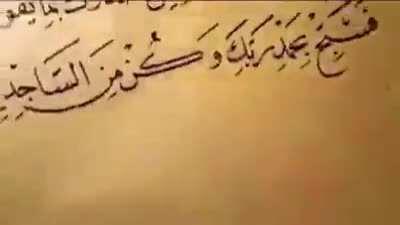 بِمَا يَقُو
فَسَبِّحْ بِحَمْدِ رَبِّكَ وَكُنْ مِنَ السَّاجِدِي